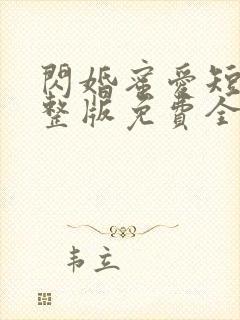 閃婚蜜愛短
整版免費全
韦立